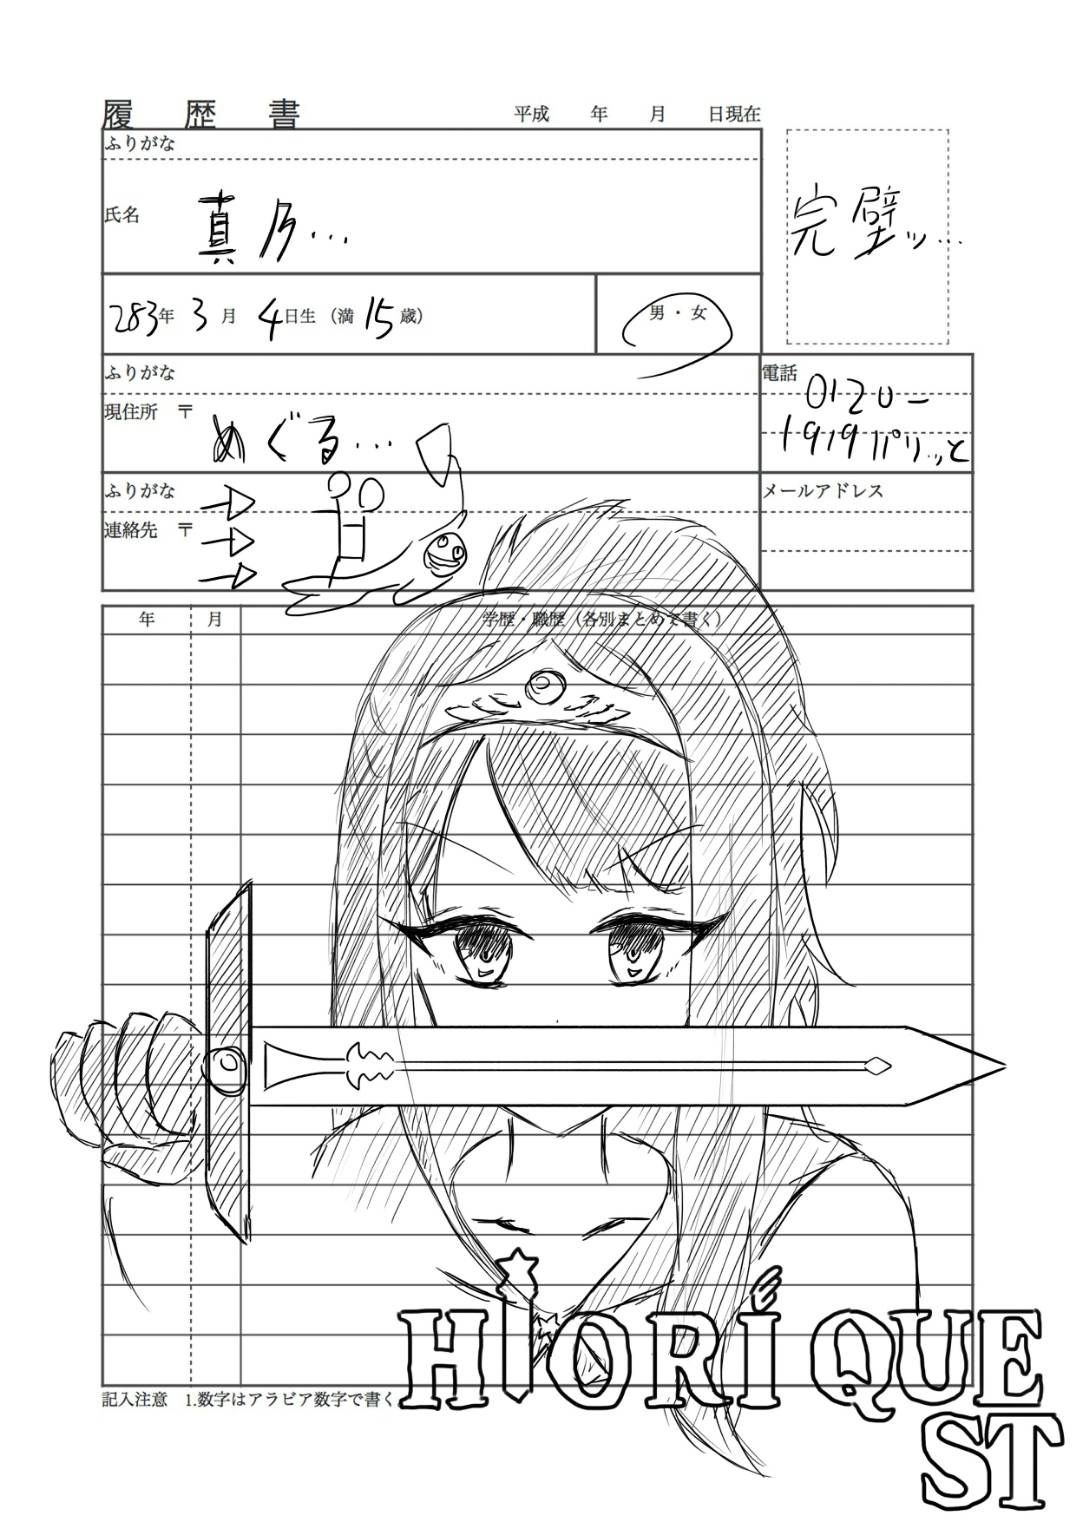 履歴書 平成 年 月 日現在
ふりがな
氏名 真乃...
完璧ッ...
283年 3月 4日生 (満 15歳)
男・女
ふりがな
現住所 〒 めぐる...
電話
0120-
1919パリッと
ふりがな
連絡先 〒
メールアドレス
年 月 学歴・職歴 (各別まとめて書く)
記入注意 1.数字はアラビア数字で書く
HiORI QUE
ST